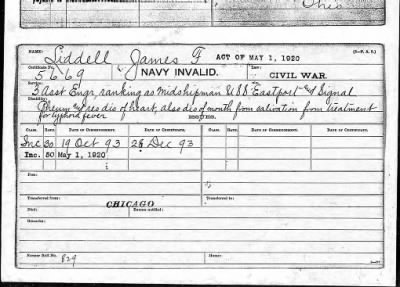 Ohio
NAME: Liddell James F ACT OF MAY 1, 1920
Certificate No. Law:
5669 NAVY INVALID. CIVIL WAR.
Service:
3 Asst Engr, ranking as Midshipman U.S.S. Eastport and Signal
Disability:
Rheum and res dis of heart, also dis of mouth from salivation from treatment
for typhoid fever
ISSUES.
CLASS. RATE. DATE OF COMMENCEMENT. DATE OF CERTIFICATE. CLASS. RATE. DATE OF COMMENCEMENT. DATE OF CERTIFICATE.
Inc 30 19 Oct 93 26 Dec 93
Inc. 50 May 1, 1920
Fees:
Transferred from: Transferred to:
CHICAGO
Died: Bureau notified:
Remarks:
Former Roll No. 829 Home: